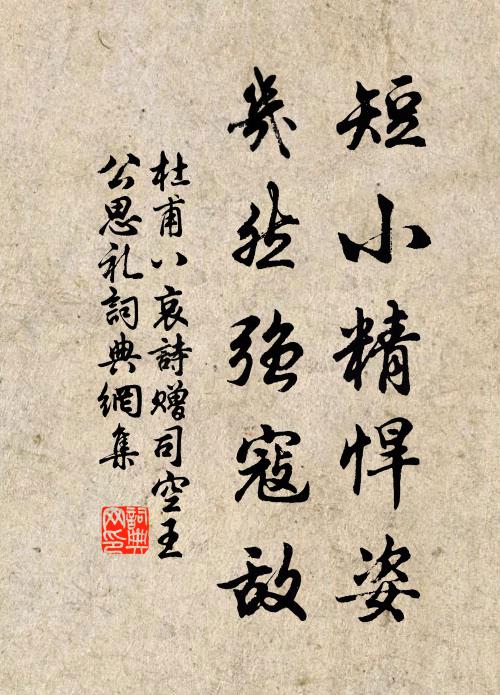 短小精悍姿
屹然強寇敌
杜甫八哀詩贈司空王
公思礼詞典網集
詞典网印